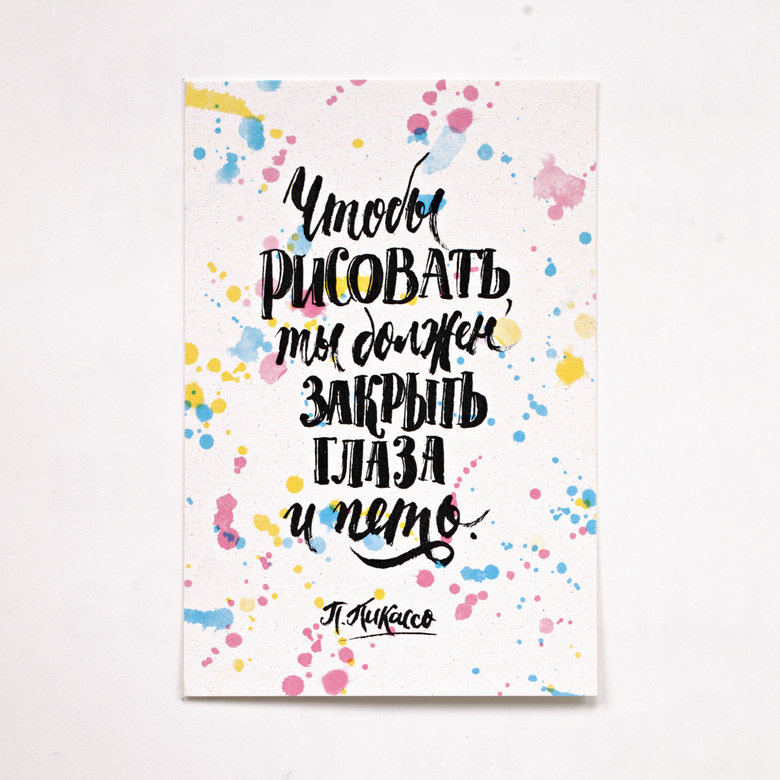 Чтобы
РИСОВАТЬ,
ты должен
ЗАКРЫТЬ
ГЛАЗА
и петь.
П. Пикассо